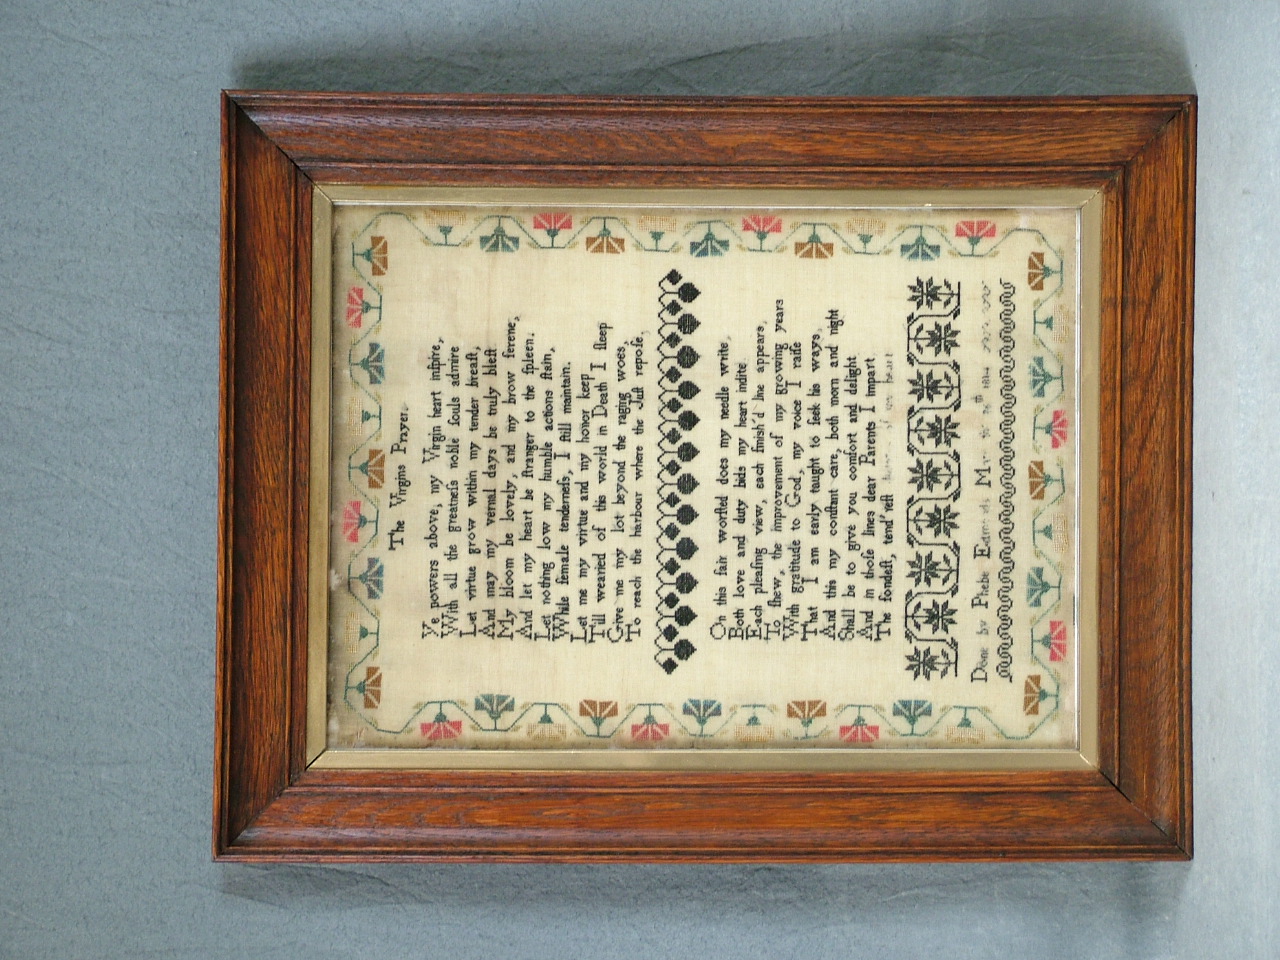 The Virgins Prayer.
Ye powers above, my Virgin heart inſpire,
With all the greatneſs noble ſouls admire
Let virtue grow within my tender breaſt,
And may my vernal days be truly bleſt
My bloom be lovely, and my brow ſerene,
And let my heart be ſtranger to the ſpleen.
Let nothing low my humble actions ſtain,
While female tenderneſs, I ſtill maintain.
Let me my virtue and my honor keep
Till wearied of this world in Death I ſleep
Give me my lot beyond the raging woes,
To reach the harbour where the Juſt repoſe,
On this fair worſted does my needle write,
Both love and duty bids my heart indite.
Each pleaſing view, each finish'd line appears,
To ſhew, the improvement of my growing years
With gratitude to God, my voice I raiſe
That I am early taught to ſeek his ways,
And this my conſtant care, both morn and night
Shall be to give you comfort and delight
And in thoſe lines dear Parents I impart
The fondeſt, tend'reſt heart
Done by Phebe 1814